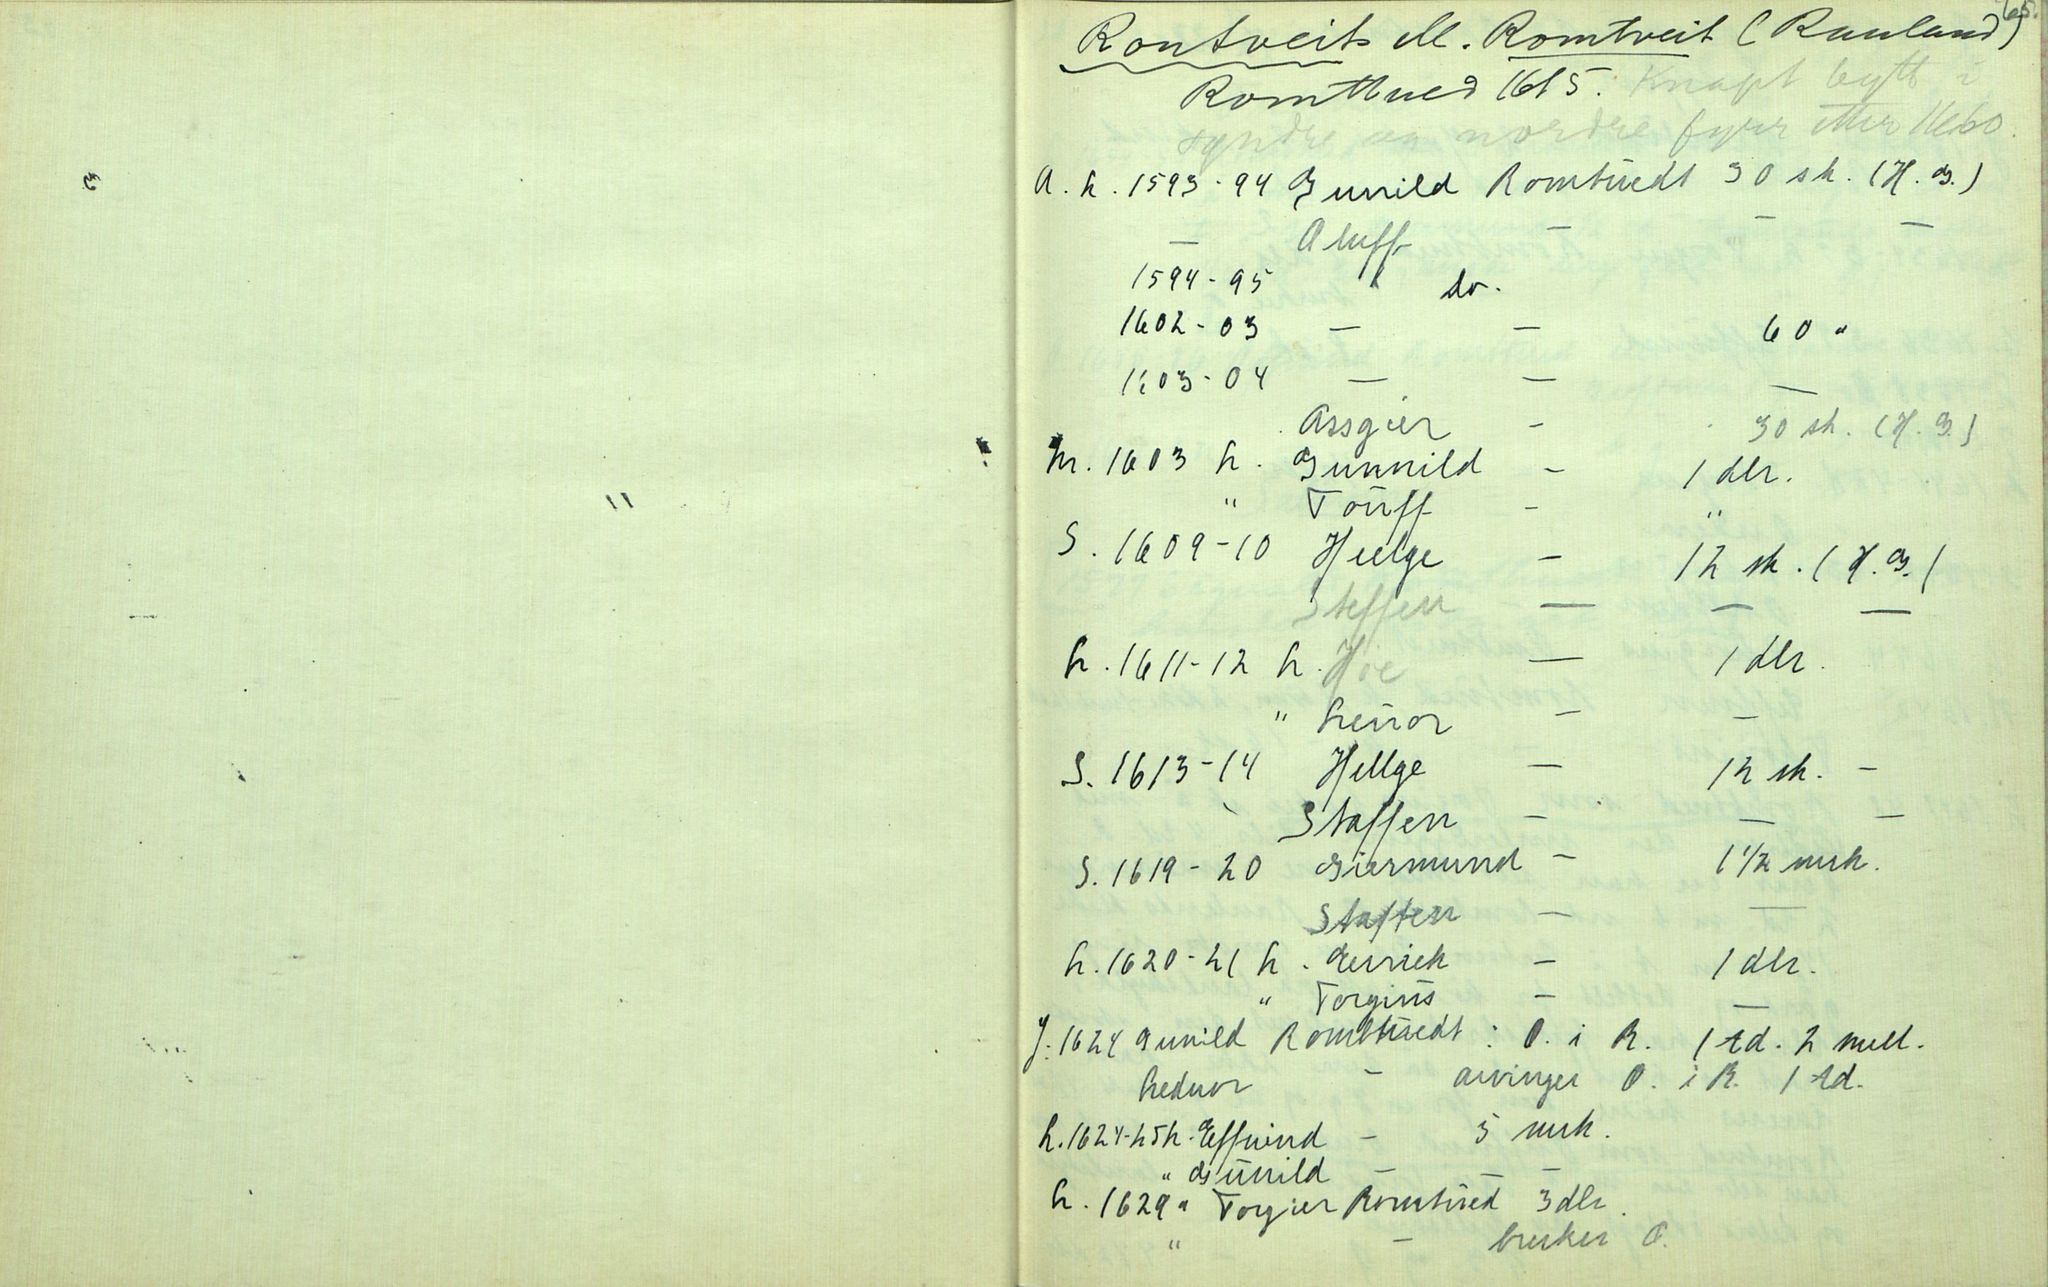 65.
Rontveit el. Romtveit (Rauland)
Romthued 1615. Knapt bytt i
syndre og nordre fyrr etter 1660.
A. L. 1593-94 Gunild Romtuedt 30 sk. (H. G.)
— Aluff — — —
1594-95 " do.
1602-03 — — 60 "
1603-04 — — —
Assgier - 30 sk. (H. G.)
M. 1603 L. Gunnild - 1 dlr.
" Touff - "
S. 1609-10 Helge - 12 sk. (H. G.)
Steffen — — —
L. 1611-12 L. — 1 dlr.
" Leuor - -
S. 1613-14 Hellge — 12 sk. -
Staffen - — —
S. 1619-20 Giermund - 1 1/2 mrk.
Staffen — —
L. 1620-21 L. - 1 dlr.
" Torgius - —
J. 1624 Gunild Romtuedt: O. i R. 1 td. 2 mell.
Leduor - arvinger O. i R. 1 td.
L. 1624-25 L. Effuind - 5 mrk.
" Gunild - -
L. 1629 " Torgier Romtued 3 dlr.
" - bruker O.